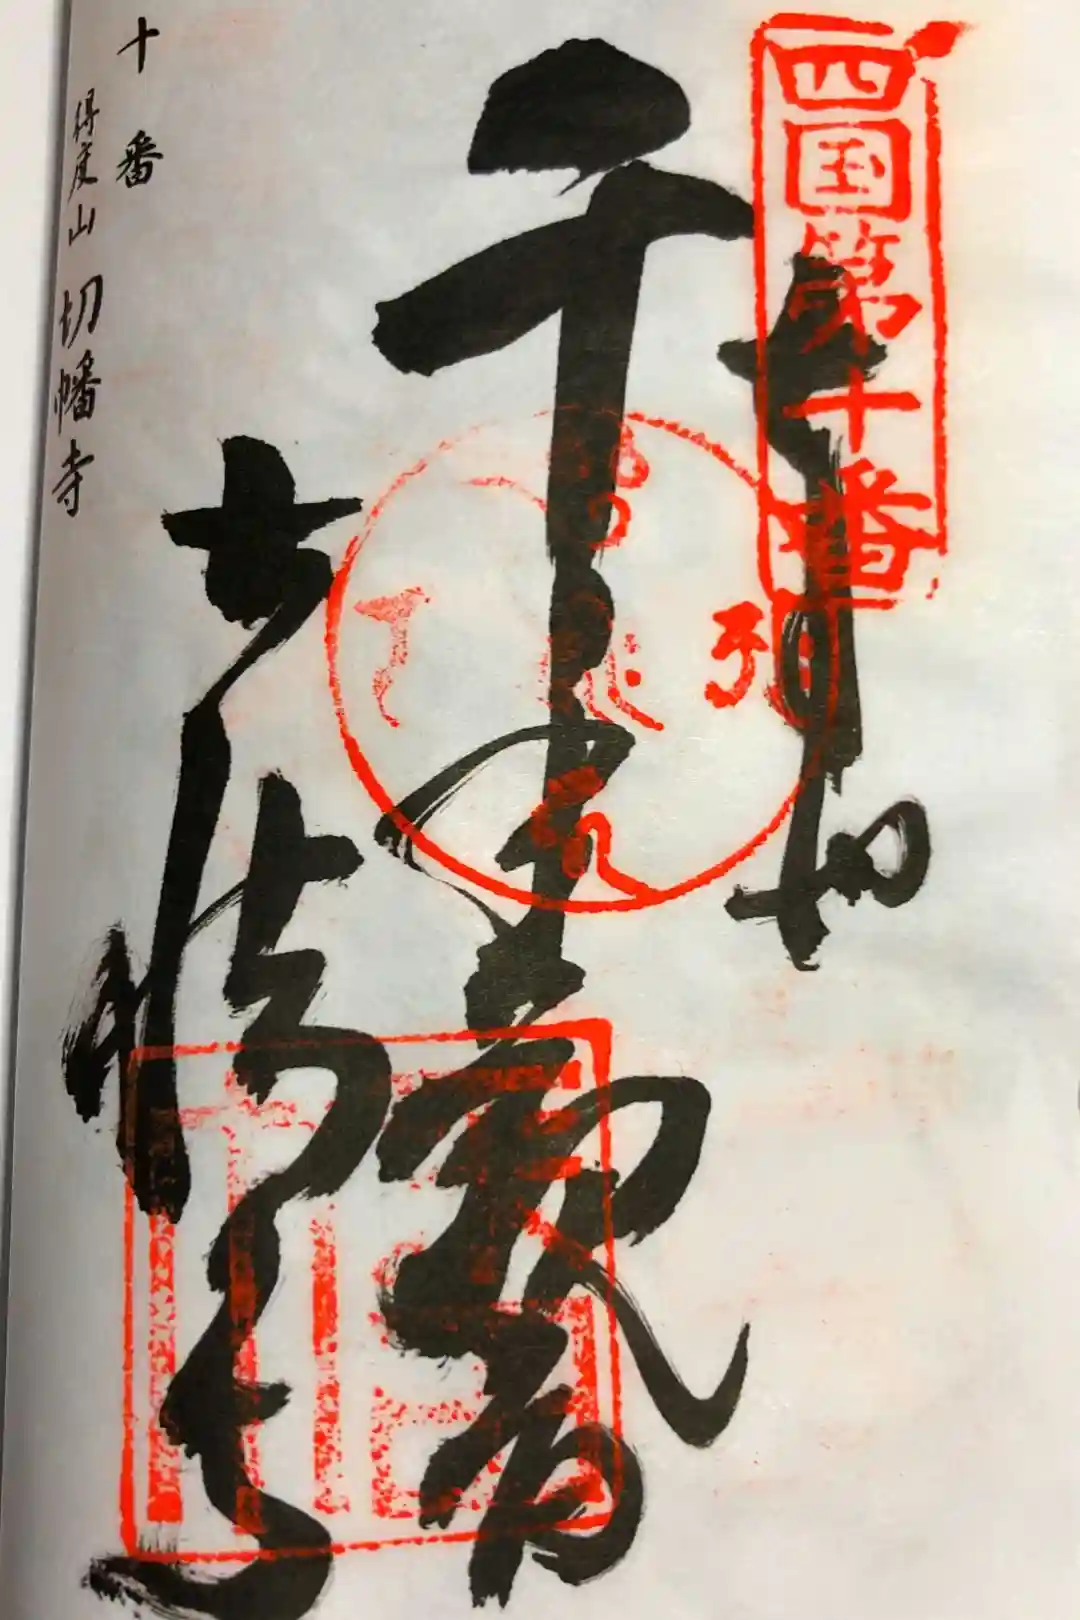 四国第十番
奉納
千手観音
切幡寺
十番
得度山 切幡寺